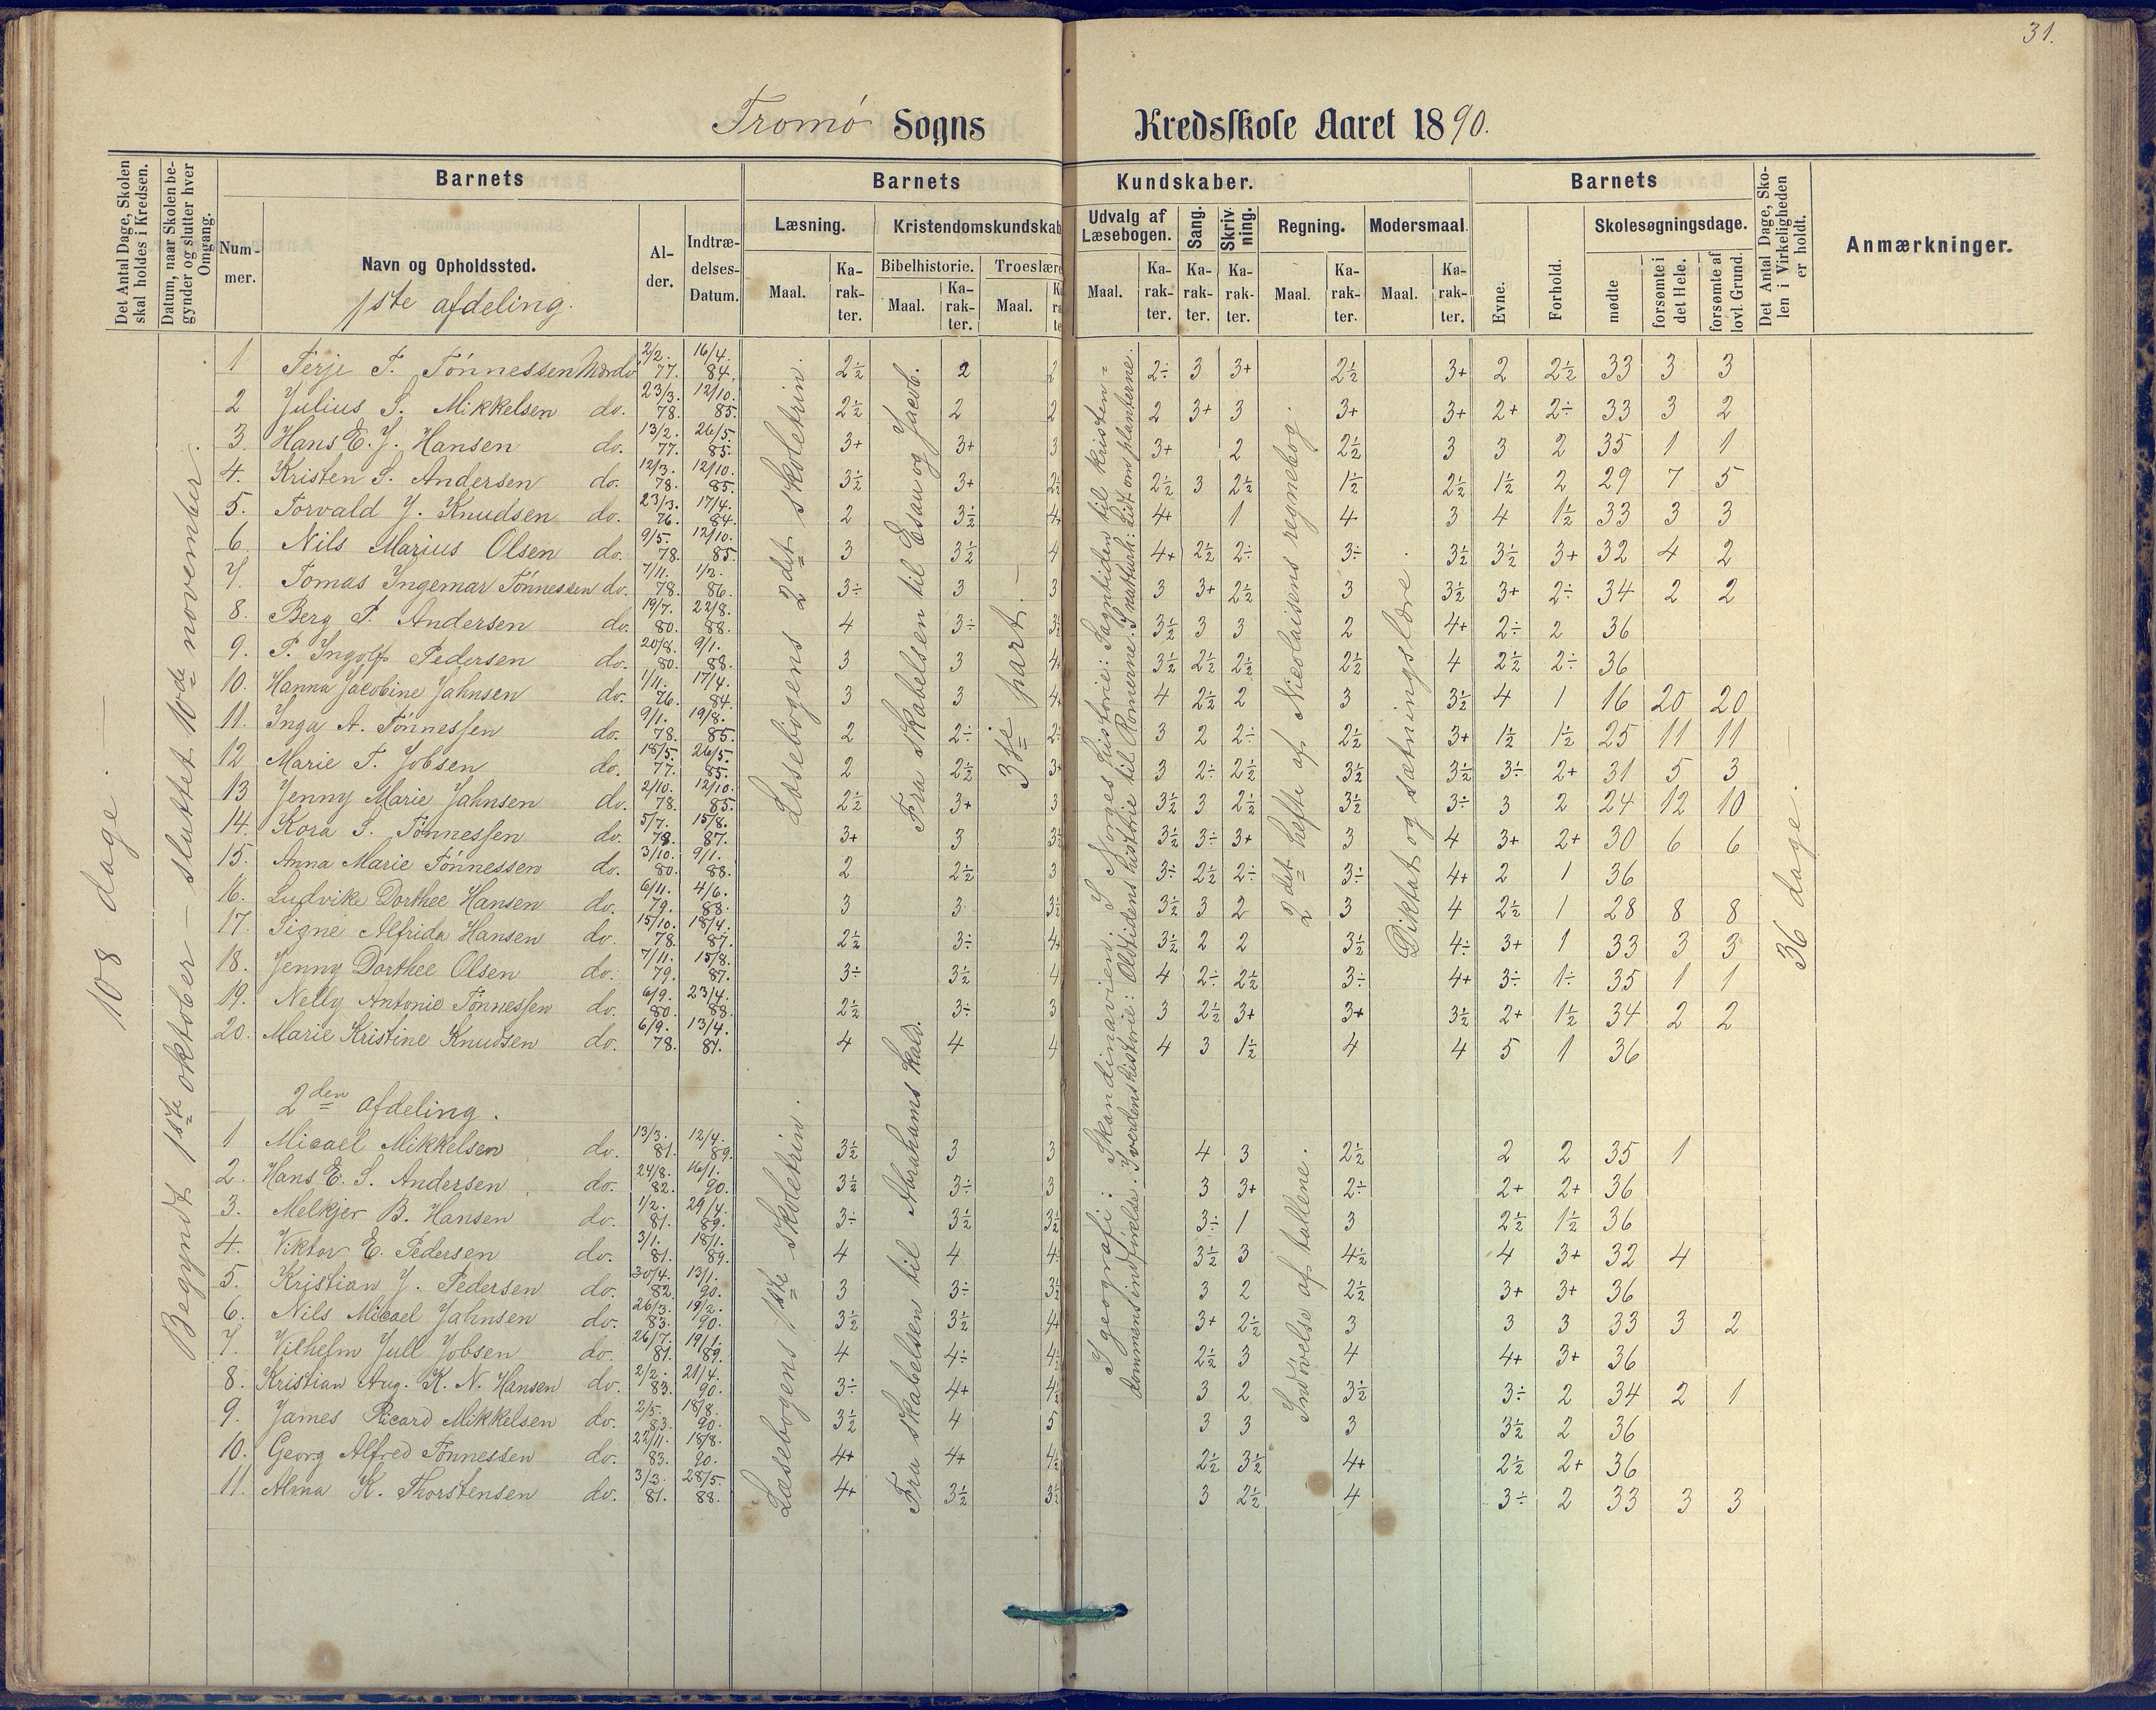 31.
Tromø Sogns Kredsskole Aaret 1890.
Det Antal Dage, Skolen skal holdes i Kredsen.
Datum, naar Skolen begynder og slutter hver Omgang.
Barnets
Nummer.
Navn og Opholdssted.
1ste afdeling.
Alder.
Indtrædelses-Datum.
Barnets Kundskaber.
Læsning.
Maal.
Karakter.
Kristendomskundskab
Bibelhistorie.
Maal.
Karakter.
Troeslære
Maal.
Udvalg af Læsebogen.
Maal.
Karakter.
Sang.
Karakter.
Skrivning.
Karakter.
Regning.
Maal.
Karakter.
Modersmaal.
Maal.
Karakter.
Barnets
Evne.
Forhold.
Skolesøgningsdage.
mødte
forsømte i det Hele.
forsømte af lovl. Grund.
Det Antal Dage, Skolen i Virkeligheden er holdt.
Anmærkninger.
108 dage.
Begyndt 1ste oktober – sluttet 10de november.
1 Terje T. Tønnessen Mærdø 2/2. 77. 16/4. 84. 2½ 2 2 2÷ 3 3+ 2½ 3+ 2 2½ 33 3 3
2 Julius S. Mikkelsen do. 23/3. 78. 12/10. 85. 2½ 2 2 2 3+ 3 3+ 3+ 2+ 2÷ 33 3 2
3. Hans E. J. Hansen do. 13/2. 77. 26/5. 85. 3+ 3+ 3 3+ 2 2½ 3 3 2 35 1 1
4. Kristen S. Andersen do. 12/3. 78. 12/10. 85. 3½ 3+ 2½ 2½ 3 2½ 1½ 2½ 1½ 2 29 7 5
5. Torvald J. Knudsen do. 23/3. 76. 17/4. 84. 2 3½ 4+ 4+ 1 4 3 4 1½ 33 3 3
6 Nils Marius Olsen do. 9/5. 78. 12/10. 85. 3 3½ 4 4+ 2½ 2÷ 3÷ 3½ 3½ 3+ 32 4 2
7. Tomas Ingemar Tønnessen do. 7/11. 78. 1/2. 86. 3÷ 3 3 3 3+ 2½ 3 3½ 3+ 2÷ 34 2 2
8. Berg P. Andersen do. 19/7. 80. 22/8. 88. 4 3÷ 3½ 3½ 3 3 2 4+ 2÷ 2 36
9. P. Ingolf Pedersen do. 20/8. 80. 9/1. 88. 3 3 4+ 3½ 2½ 2½ 2½ 4 2½ 2÷ 36
10. Hanna Jacobine Jahnsen do. 1/11. 76. 17/4. 84. 3 3 4+ 4 2½ 2 3 3½ 4 1 16 20 20
11. Inga A. Tønnessen do. 9/1. 78. 19/8. 85. 2 2÷ 2÷ 3 2 2÷ 2½ 3+ 1½ 1½ 25 11 11
12 Marie T. Jobsen do. 18/5. 77. 26/5. 85. 2 2½ 3+ 3 2÷ 2½ 3½ 3½ 3÷ 2+ 31 5 3
13 Jenny Marie Jahnsen do. 2/10. 78. 12/10. 85. 2½ 3+ 3 3½ 3 2½ 3½ 3÷ 3 2 24 12 10
14. Kora S. Tønnessen do. 5/7. 78. 15/8. 87. 3+ 3 3½ 3½ 3÷ 3+ 3 4 3+ 2+ 30 6 6
15. Anna Marie Tønnessen do. 3/10. 80. 9/1. 88. 2 2½ 3 3÷ 2½ 2÷ 3÷ 4+ 2 1 36
16. Ludvike Dorthee Hansen do. 6/11. 79. 4/6. 88. 3 3 3½ 3½ 3 2 3 4 2½ 1 28 8 8
17. Signe Alfrida Hansen do. 15/10. 78. 18/4. 87. 2½ 3÷ 4+ 3½ 2 2 3½ 4÷ 3+ 1 33 3 3
18. Jenny Dorthee Olsen do. 7/11. 79. 15/8. 87. 3÷ 3½ 4 4 2÷ 2½ 3÷ 4+ 3÷ 1÷ 35 1 1
19. Nelly Antonie Tønnessen do. 6/9. 80. 23/4. 88. 2½ 3÷ 3 3 2½ 3+ 3+ 3½ 2+ 1½ 34 2 2
20. Marie Kristine Knudsen do. 6/9. 78. 13/4. 87. 4 4 4 4 3 1½ 4 4 5 1 36
Læsebogens 2det skoletrin.
Fra skabelsen til Esau og Jacob.
3dje part.
I geografi: Skandinavien; I Norges historie: Sagntiden til kristendommens indførelse. I verdenshistorie: Oldtidens historie til Romerne. I naturh: Lidt om planterne.
2det hefte af Nicolaisens regnebog.
Diktat og sætningslære.
36 dage.
2den afdeling.
1 Micael Mikkelsen do. 13/3. 81. 12/4. 89. 3½ 3 3 4 3 2½ 2 2 35 1
2. Hans E. S. Andersen do. 24/8. 82. 16/1. 90. 3½ 3÷ 3 3 3+ 2÷ 2+ 2+ 36
3. Melkjer B. Hansen do. 1/2. 81. 29/4. 89. 3÷ 3½ 3½ 3÷ 1 3 2½ 1½ 36
4. Viktor E. Pedersen do. 3/1. 81. 18/1. 89. 4 4 4÷ 3½ 3 4½ 4 3+ 32 4
5. Kristian J. Pedersen do. 30/4. 82. 13/1. 90. 3 3÷ 3½ 3 2 2½ 3+ 3+ 36
6. Nils Micael Jahnsen do. 26/3. 83. 19/2. 90. 3½ 3½ 4+ 3+ 2½ 3 3 3 33 3 2
7. Vilhelm Jull Jobsen do. 26/7. 81. 19/1. 89. 4 4÷ 4½ 2½ 3 4 4+ 3+ 36
8. Kristian Aug. K. N. Hansen do. 2/2. 83. 21/4. 90. 3÷ 4+ 4½ 3 2 3½ 3÷ 2 34 2 1
9. James Ricard Mikkelsen do. 2/5. 83. 18/8. 90. 3½ 4 5 3 3 3 3½ 2 36
10. Georg Alfred Tønnessen do. 22/11. 83. 18/8. 90. 4+ 4+ 4½ 2½ 3½ 4+ 2½ 2+ 36
11. Alma K. Thorstensen do. 3/3. 81. 28/5. 88. 4+ 3½ 3½ 3 2½ 4 3÷ 2 33 3 3
Læsebogens 1ste skoletrin.
Fra skabelsen til Abrahams kald.
Indøvelse af tallene.